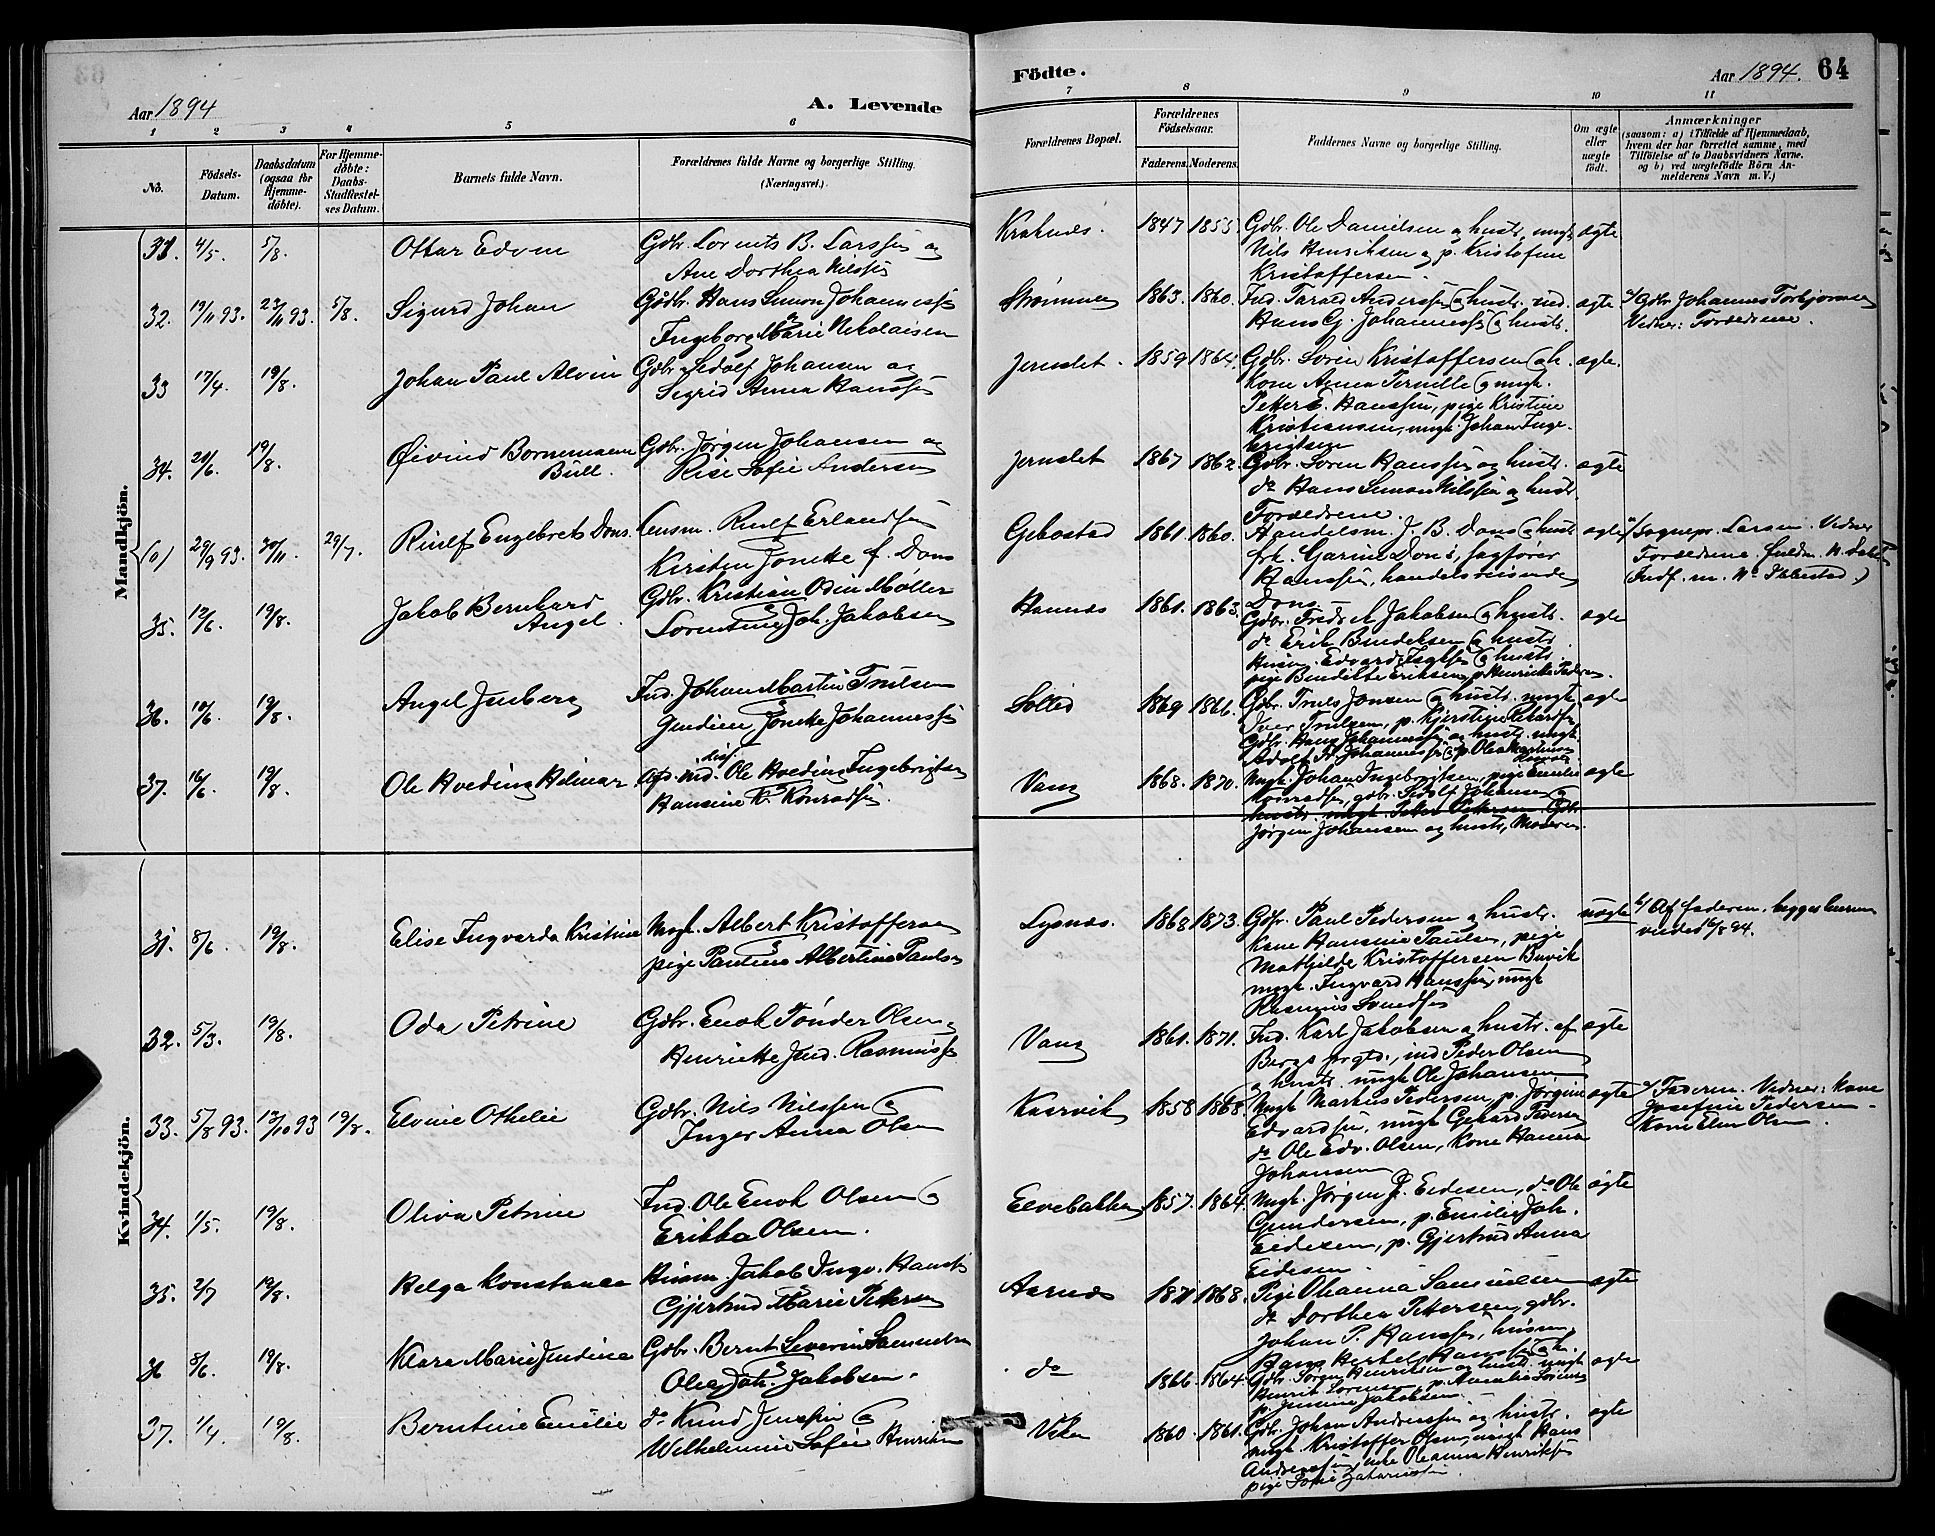 Aar 1894
A. Levende
Födte.
Aar 1894.
64
1 2 3 4 5 6 7 8 9 10 11
No.
Födsels-Datum.
Daabsdatum (ogsaa for Hjemmedöbte).
For Hjemmedöbte: Daabs-Stadfæstelses Datum.
Barnets fulde Navn.
Forældrenes fulde Navne og borgerlige Stilling. (Næringsvei.)
Forældrenes Bopæl.
Forældrenes Födselsaar.
Faderens. Moderens.
Faddernes Navne og borgerlige Stilling.
Om ægte eller uægte födt.
Anmærkninger
(saasom: a) i Tilfælde af Hjemmedaab, hvem der har forrettet samme, med Tilföielse af to Daabsvidners Navne. og b) ved uægtefödte Börn Anmelderens Navn m. V.)
Mandkjön.
31. 4/5. 5/8. Ottar Edvin
Gdbr. Lorents B. Larssen og
Ane Dorthea Nilssen
Kraknes. 1847 1853.
Gdbr. Ole Danielsen og hustr. ungk.
Nils Henriksen og p. Kristofine
Kristoffersen.
ægte
32. 19/11 93. 23/11 93. 5/8. Sigurd Johan
Gdbr. Hans Simon Johannessen
Ingeborg Marie Nikolaisen
1863. 1860.
Ind. Tarald Anderssen og hustr. ind.
Hans G. Johannessen og hustr.
ægte
a/ Gdbr. Johannes Torbjornsen
Vidner: Forældrene.
33 17/4. 19/8. Johan Paul Alvin
Gdbr. Sidolf Johansen og
Sigrid Anna Hanssen
Jernslet. 1859 1864.
Gdbr. Sören Kristoffersen og h.
Kone Anna Pernille og ungk.
Petter E. Hanssen, pige Kristine
Kristiansen, ungk. Johan Inge-
brigtsen
ægte.
34. 20/6. 19/8. Øivind Bornemann
Bull.
Gdbr. Jørgen Johansen og
Risi Sofie Andersen
Jernslet 1867 1862.
Gdbr. Sören Hanssen og hustr.
do Hans Simon Nilssen og hustr.
Forældrene
ægte
(0) 29/9 93. 30/11. 29/7. Rieulf Engebret Dons.
Lensm. Rieulf Erlandsen
Kirsten Jonette f. Dons
Gebostad 1861 1860.
Handelsm. J. B. Dons og hustr.
frk. Garine Dons, sagförer
Hanssen, handelsreisende
Dons
ægte
a/ Sognepr. Larsen. Vidner
Forældrene.
(Indf. m. No Ibbestad.)
35. 12/6. 19/8. Jakob Bernhard
Angel.
Gdbr. Kristian Olsen Möller
Lorentine Joh. Jakobsen
Hamnes 1861. 1863.
Gdbr. Fredrik Jakobsen og hustr.
do Erik Bendiksen og hustr.
Husm. Edvard Isaksen og hustr.
pige Bendikte Eriksen, p. Henrikke Pedersen.
ægte
36. 10/6. 19/8. Angel Jenberg
Ind. Johan Martin Trulsen
Gundine Jonette Johannessen
Solled 1869 1866.
Gdbr. Truls Jonsen og hustr. ungk.
Iver Trulsen, p. Kjerstine
Gdbr. Hans Johannessen og hustr. ungk.
Adolf Fr. Johannessen og p. Olea Martinsen
ægte
37. 16/6. 19/8. Ole Hveding Helmar
Ole Hveding Ingebrigtsen
Hansine K. Konradsen
Vang 1868. 1870.
Ungk. Johan Ingebrigtsen, pige Emilie
Konradsen, gdbr. Sidolf Johansen og
hustr. ungk. Peter Petersen. Gdbr.
Jørgen Johansen og hustr, Moderen.
ægte
Kvindekjön.
31. 8/6. 19/8. Elise Ingvarda Kristine
Ungk. Albert Kristoffersen
pige Pauline Albertine Paulsen
Lysnes. 1868 1873.
Gdbr. Paul Pedersen og hustr.
Kone Hansine Paulsen, pige
Mathilde Kristoffersen Buvik
ungk. Ingvard Hanssen, ungk
Rasmus
uægte
b/ Af faderen. begges
16/8 94.
32. 5/3. 19/8. Oda Petrine
Gdbr. Enok Tönder Olsen og
Henrikke Jend. Rasmussen
Vang 1861. 1871.
Ind. Karl Jakobsen og hustr. af
Bergs prgld., ind. Peder Olsen
og hustr. ungk Ole Johansen
ægte
33. 5/8 93. 13/10 93 19/8. Elvine Othelie
Gdbr. Nils Nilssen og
Inger Anna Olsen
Kaarvik 1858 1868.
Ungk Markus Pedersen, p. Jørgine
Edvardsen, ungk Gerhard Pedersen
do Ole Edv. Olsen, Kone Hanna
Johansen
ægte
a/ Faderen. Vidner: Kone
Josefine Pedersen
Kone Elen Olsen.
34. 1/5. 19/8. Oliva Petrine
Ind. Ole Enok Olsen og
Erikka Olsen.
Elvebakken 1857. 1864.
Ungk. Jørgen J. Eidesen, do Ole
Gundersen, p. Emilie Joh.
Eidesen, p. Gjertrud Anna
Eidesen.
ægte
35. 2/7 19/8. Helga Konstanse
Husm. Jakob Ingv. Hanssen
Gjertrud Marie Petersen
Aarnes 1871 1868.
Pige Ohanna Samuelsen
do Dorthea Pettersen, gdbr.
Johan P. Hanssen, husm.
Hans Hertel Hanssen og h.
ægte
36 8/6. 19/8. Klara Marie Jendine
Gdbr. Bernt Severin Samuelsen
Olea Joh. Jakobsen.
do 1866. 1864.
Gdbr. Sören Henriksen og hustr. ungk
Henrik Sörensen, p. Amalie Sörensen
p. Jensine Jakobsen.
ægte
37. 1/4. 19/8. Berntine Emilie
do Knud Jenssen og
Wilhelmine Sofie Henriksen
Viken 1860. 1861.
Gdbr. Johan Andreassen og hustr.
ungk. Kristoffer Olsen, ungk Hans
Andreassen, enke Oleanna Henriksen
pige Sofie Zakariassen.
ægte